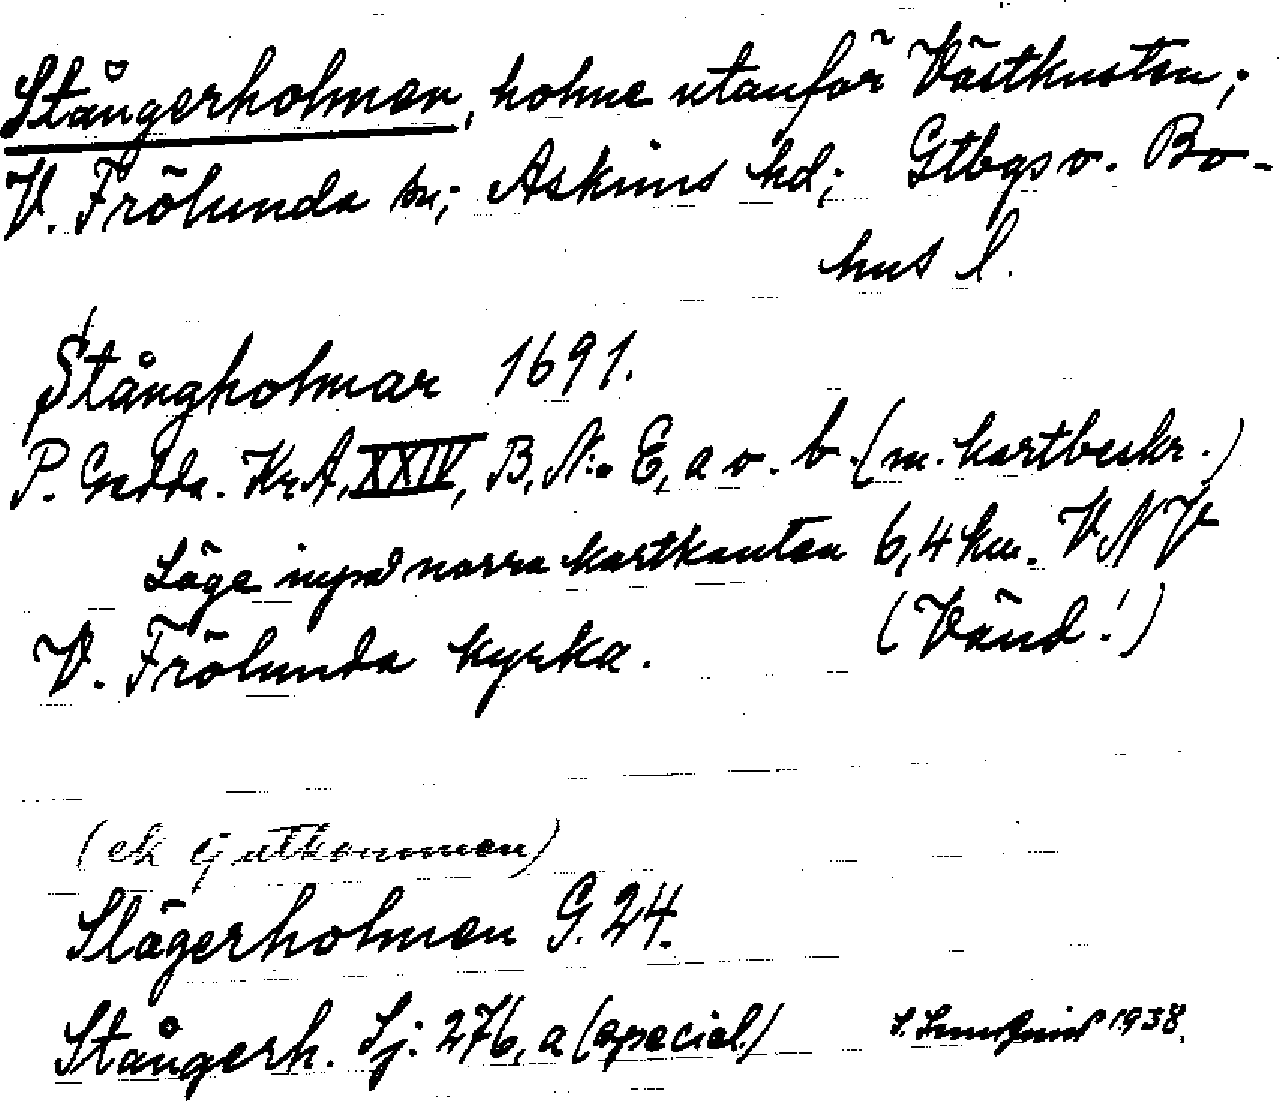 Stångerholmen, holme utanför Västkusten;
V. Frölunda sn; Askims hd; Gtbgs o. Bo-
hus l.
Stångholmar 1691.
P. Gedda. KrA, XXIV, B, N:o E, a o. b. (m. kartbeskr.)
Läge invid norra kartkanten 6,4 km. VNV
V. Frölunda kyrka. (Vänd!)
(ek ej utkommen)
Slägerholmen G. 24.
Stångerh. Sj: 276, a (special) 1938.